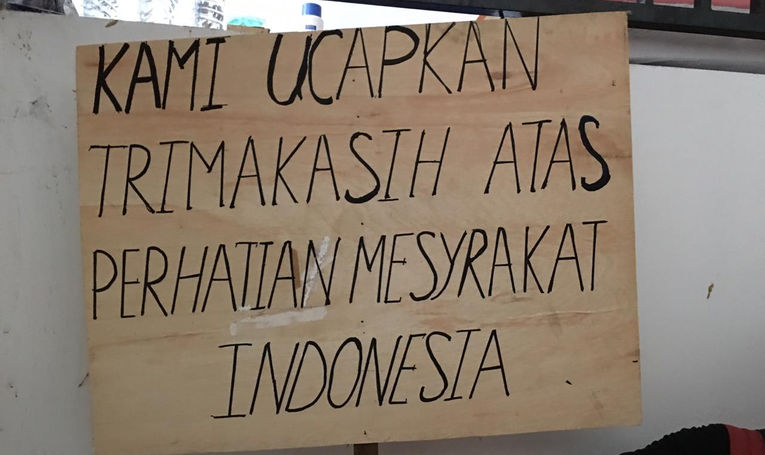 KAMI UCAPKAN
TRIMAKASIH ATAS
PERHATIAN MESYRAKAT
INDONESIA